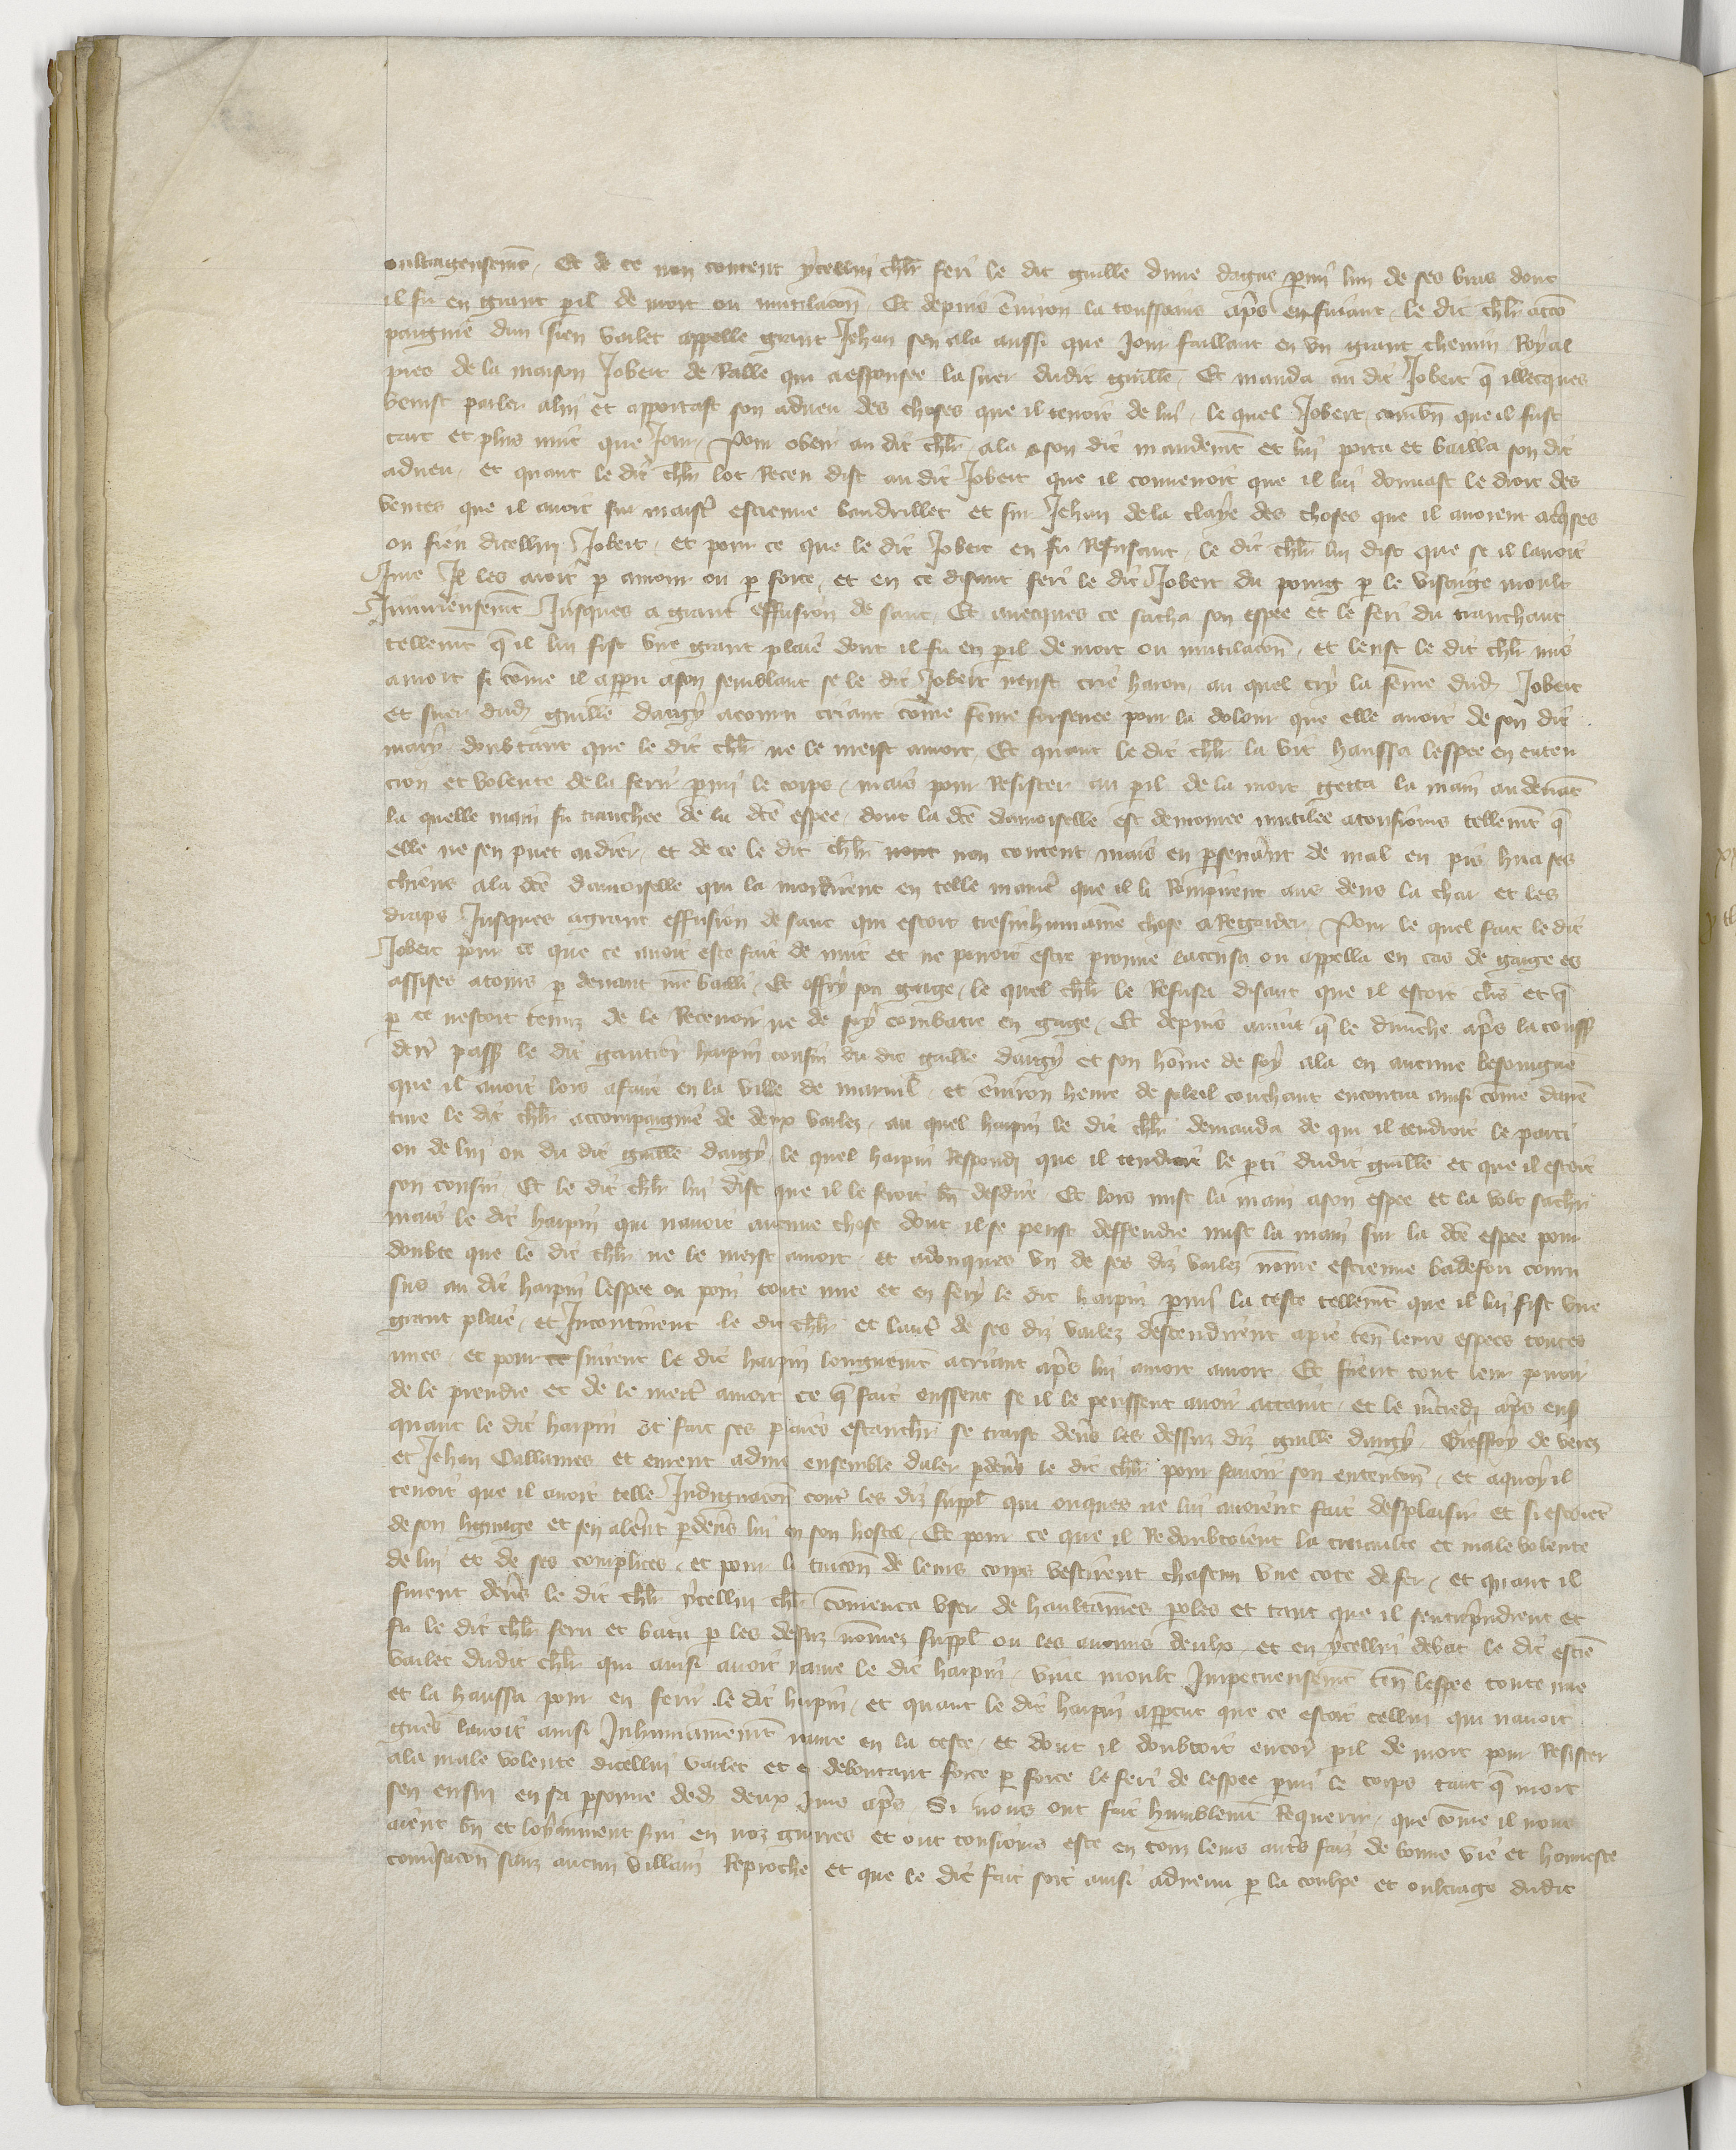 oultrageusemt, Et de ce non content ycellui chlr feri le dit guille dune dague pmi lun de ses bras dont
il fu en grant pil de mort ou mutilacon, Et depuis environ la toussains aps ensuiant, le dit chlr acco
paignie dun sien varlet appelle grant Jehan sen ala aussi que Jour faillant en un grant chemin Royal
pres de la maison Jobert de Valle qui a espousee la suer dudit guille, Et manda au dit Jobert q illecques
venist parler a lui et apportast son adveu des choses que il tenoit de lui, le quel Jobert combn que il fust
tart et plus nuit que Jour, Pour obeir au dit chlr ala a son dit mandemt et lui porta et bailla son dit
adveu, et quant le dit chlr lot Receu dist au dit Jobert que il convenoit que il lui donnast le droit des
ventes que il avoit sur maistr estienne baudrillet et sur Jehan de la claye des choses que il avoient acqses
ou fieu dicellui Jobert, et pour ce que le dit Jobert en fu Refusant, le dit chlr lui dist que se il lavoit
Jure Il les avoit p amour ou p force, et en ce disant feri le dit Jobert du poing p le visaige moult
Injurieusemt Jusques a grant effusion de sanc, Et avecques ce sacha son espee et le feri du tranchant
tellemt q il lui fist une grant plaie dont il fu en pil de mort ou mutilacon, et leust le dit chlr mis
a mort si come il apparu a son semblant se le dit Jobert neust crie harou, au quel cry la feme dud Jobert
et suer dud guille daugy acouru criant come feme forsenee pour la dolour que elle avoit de son dit
mary, doubtant que le dit chlr ne le meist a mort, Et quant le dit chlr la vit haussa lespee en enten
cion et volente de la ferir pmi le corps, mais pour Resister au pil de la mort getta la main au devat
la quelle main fu tranchee de la dte espee, dont la dte damoiselle est demouree mutilee a tousiours tellemt q
elle ne sen puet aidier, et de ce le dit chlr non content mais en psevant de mal en pis hua ses
chiens a la dte damoiselle qui la mordirent en telle manie que il li Rompirent aus dens la char et les
draps Jusques a grant effusion de sanc qui estoit tresinhumaine chose a Regarder, Pour le quel fait le dit
Jobert pour ce que ce avoit este fait de nuit et ne povoit estre prouve laccusa ou appella en cas de gaige es
assises a tours p devant nre bailli, Et offry son gaige, le quel chlr le Refusa disant que il estoit clers et q
p ce nestoit tenuz de le Recevoir ne de soy combatre en gage, Et depuis avint q le dimenche aps la touss
derr pass le dit gautier harpin cousin du dit guille daugy et son home de foy ala en aucune besoingne
que il avoit lors a faire en la ville de marnil, et environ heure de soleil couchant encontra ainsi come daven
ture le dit chlr accompaignie de deux varlez, au quel harpin le dit chlr demanda de qui il tendroit le parti
ou de lui ou du dit guille daugy, le quel harpin Respondi que il tendroit le pti dudit guille et que il estoit
son cousin, Et le dit chlr lui dist que il le feroit bn desdire Et lors mist la main a son espee et la volt sachier
mais le dit harpin qui navoit aucune chose dont il se peust deffendre mist la main sur la dte espee pour
doubte que le dit chlr ne le meist a mort, et adonques un de ses diz varlez nomme estienne badefou couru
sus au dit harpin lespee ou poin toute nue et en fery le dit harpin pmi la teste tellemt que il lui fist une
grant plaie, et Incontinent le dit chlr et lautr de ses diz varlez descendirent a pie ten leurs espees toutes
nues, et poursuirent le dit harpin longuemt a criant aps lui a mort a mort, Et firent tout leur povoir
de le prendre et de le mettr a mort ce q fait eussent se il le peussent avoir attaint, et le mcredi aps ens
quant le dit harpin ot fait ses plaies estancher se traist devs les dessuz diz guille daugy, Gieffroy de verez
et Jehan Vallaines et eurent advis ensemble daler pdevs le dit chlr pour savoir son entencon, et a quoy il
tenoit que il avoit telle Indignacon contr les diz suppl qui onques ne lui avoient fait desplaisir et si estoiet
de son lignage et sen alerent pdevs lui en son hostel, Et pour ce que il Redoubtoient la cruaulte et male volente
de lui et de ses complices, et pour la tuicon de leurs corps vestirent chascun une cote de fer, et quant il
furent devs le dit chlr ycellui chlr comenca user de haultaines poles et tant que il sentreprindrent et
fu le dit chlr feru et batu p les dessuz nomez suppl ou les aucuns deulx, et en ycellui debat le dit estie
varlet dudit chlr qui ainsi avoit navre le dit harpin, vint moult Impetueusemt ten lespee toute nue
et la haussa pour en ferir le dit harpin, et quant le dit harpin appceut que ce estoit cellui qui navoit
gues lavoit ainsi Inhumainemt navre en la teste, et dont il doubtoit encor pil de mort pour Resister
a la male volente dicellui varlet et en deboutant force p force le feri de lespee pmi le corps tant q mort
sen ensui en sa psonne ded deux jours aps, Si nous ont fait humblemt Requerir, que come il nous
aient bn et loyaument svi en noz guerres et ont tousiours este en tous leurs autrs faiz de bonne vie et honneste
conversacon sanz aucun villain Reproche et que le dit fait soit ainsi advenu p la coulpe et oultrage dudit